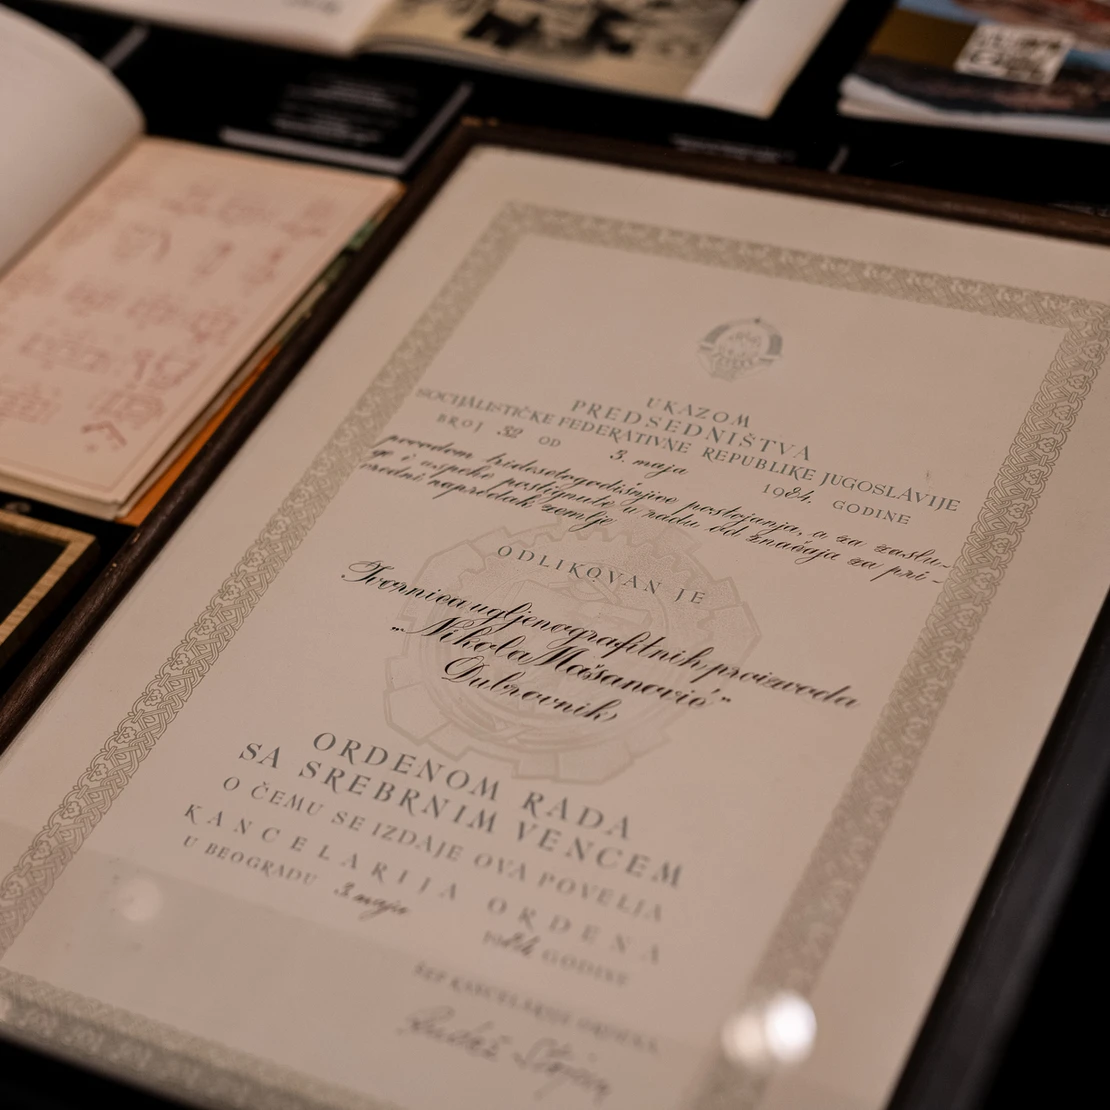 UKAZOM
PREDSEDNIŠTVA
SOCIJALISTIČKE FEDERATIVNE REPUBLIKE JUGOSLAVIJE
BROJ 32 OD 3. maja 1984. GODINE
povodom tridesetogodišnjice postojanja, a za zaslu-
ge i uspehe postignute u radu od značaja za pri-
vredni napredak zemlje
ODLIKOVAN JE
Tvornica ugljenografitnih proizvoda
„Nikola Mašanović“
Dubrovnik
ORDENOM RADA
SA SREBRNIM VENCEM
O ČEMU SE IZDAJE OVA POVELJA
KANCELARIJA ORDENA
U BEOGRADU 3. maja 1984 GODINE
ŠEF KANCELARIJE ORDENA